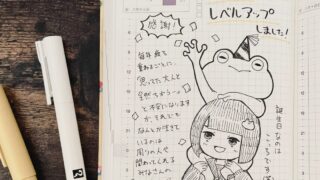 レベルアップ
しました!
感謝!
毎年歳を
重ねるごとに、
「思ってた大人と
全然ちがう…。」
と不安になります
が、それでも
なんとか生きて
いるのは
周りの人や
関わってくれる
みなさんの
誕生日なのは
こっちです